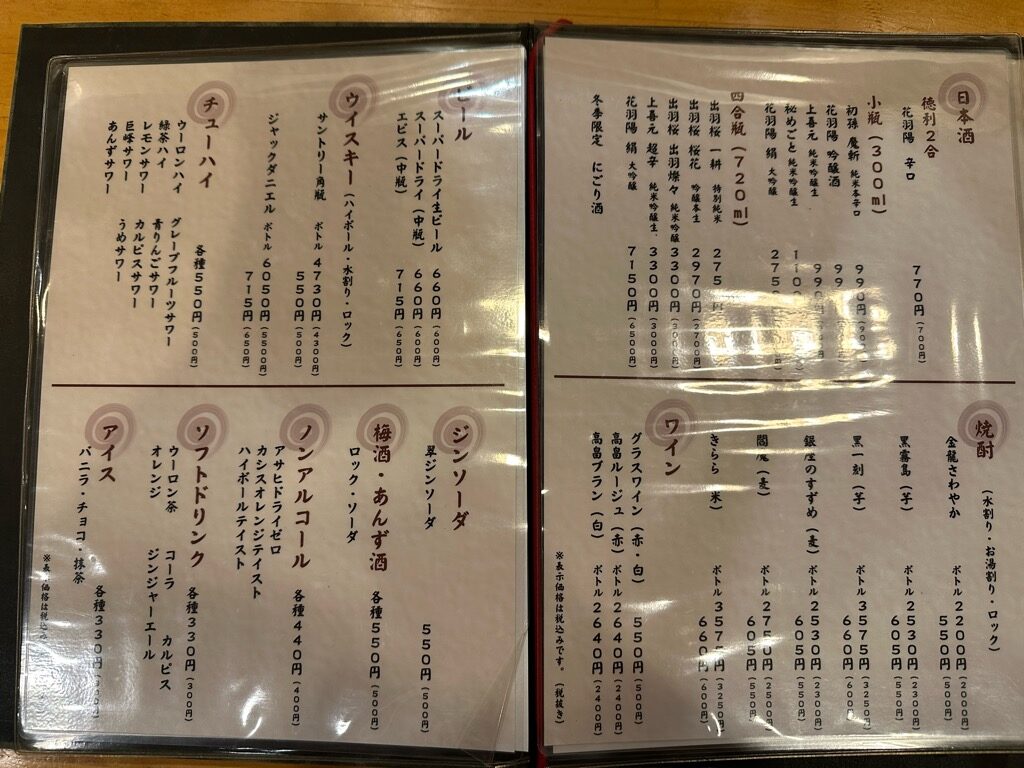 日本酒
徳利2合
花羽陽 辛口 770円(700円)
小瓶(300ml)
初孫 魔斬 純米本辛口 990円
花羽陽 吟醸酒
上喜元 純米吟醸生 990円
秘めごと 純米吟醸生
花羽陽 絹 大吟醸
四合瓶(720ml)
出羽桜 一耕 特別純米
出羽桜 桜花 吟醸本生 2970円(2700円)
出羽桜 出羽燦々 純米吟醸 3300円(3000円)
上喜元 超辛 純米吟醸生 3300円(3000円)
花羽陽 絹 大吟醸 7150円(6500円)
冬季限定 にごり酒
焼酎 (水割り・お湯割り・ロック)
金龍さわやか ボトル2200円(2000円)
550円(500円)
黒霧島(芋) ボトル2530円(2300円)
605円(550円)
黒一刻(芋) ボトル3575円(3250円)
660円(600円)
銀座のすずめ(麦) ボトル2530円(2300円)
605円(550円)
閻魔(麦) ボトル2750円(2500円)
605円(550円)
きらら ボトル3575円
660円(600円)
ワイン
グラスワイン(赤・白) 550円(500円)
高畠ルージュ(赤) ボトル2640円(2400円)
高畠ブラン(白) ボトル2640円(2400円)
※表示価格は税込みです。(税抜き)
ビール
スーパードライ生ビール 660円(600円)
スーパードライ(中瓶) 660円(600円)
エビス(中瓶) 715円(650円)
ウイスキー(ハイボール・水割り・ロック)
サントリー角瓶 ボトル4730円(4300円)
550円(500円)
ジャックダニエル ボトル6050円(5500円)
715円(650円)
チューハイ 各種550円(500円)
ウーロンハイ グレープフルーツサワー
緑茶ハイ 青りんごサワー
レモンサワー カルピスサワー
巨峰サワー うめサワー
あんずサワー
ジンソーダ
翠ジンソーダ 550円(500円)
梅酒・あんず酒 各種550円(500円)
ロック・ソーダ
ノンアルコール 各種440円(400円)
アサヒドライゼロ
カシスオレンジテイスト
ハイボールテイスト
ソフトドリンク 各種330円(300円)
ウーロン茶 コーラ カルピス
オレンジ ジンジャーエール
アイス 各種330円
バニラ・チョコ・抹茶
※表示価格は税込みです。